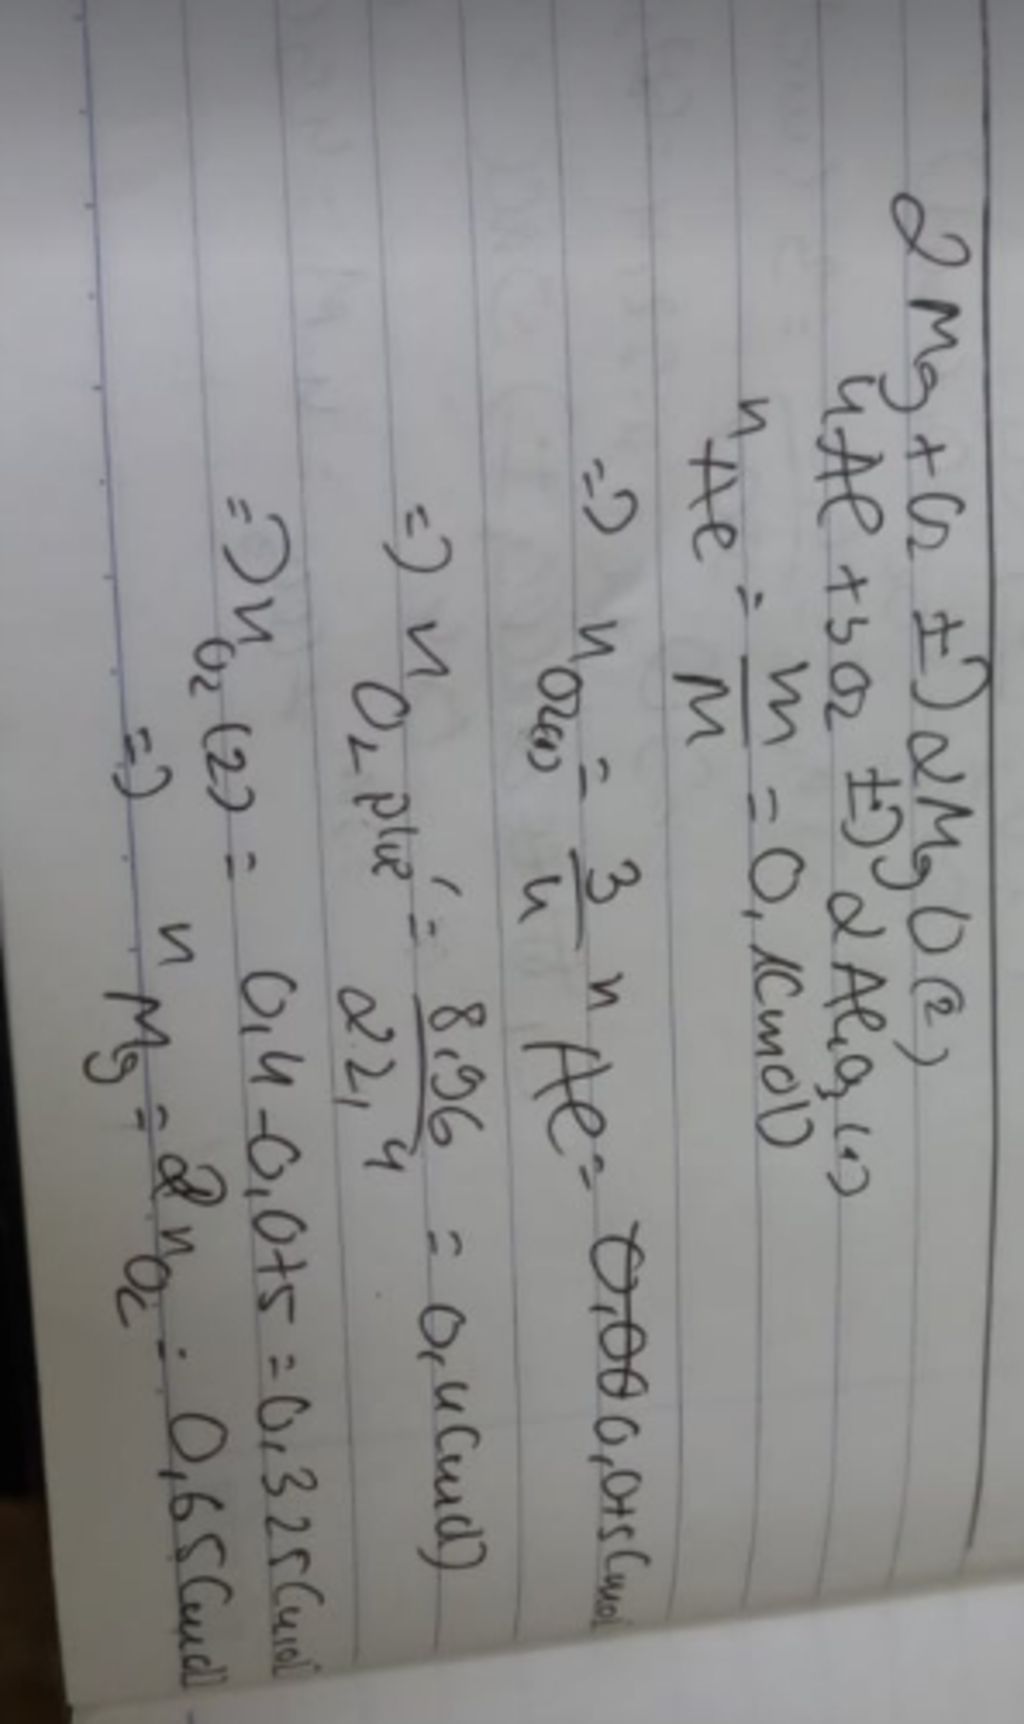 2Mg + O2 t°→ 2MgO (2)
4Al + 3O2 t°→ 2Al2O3 (1)
nAl = m/M = 0,1(mol)
=> nO2(1) = 3/4 nAl = 0,075(mol
=> nO2 = 8,96/22,4 = 0,4(mol)
=> nO2(2) = 0,4 - 0,075 = 0,325(mol)
=> nMg = 2nO2 = 0,65(mol)